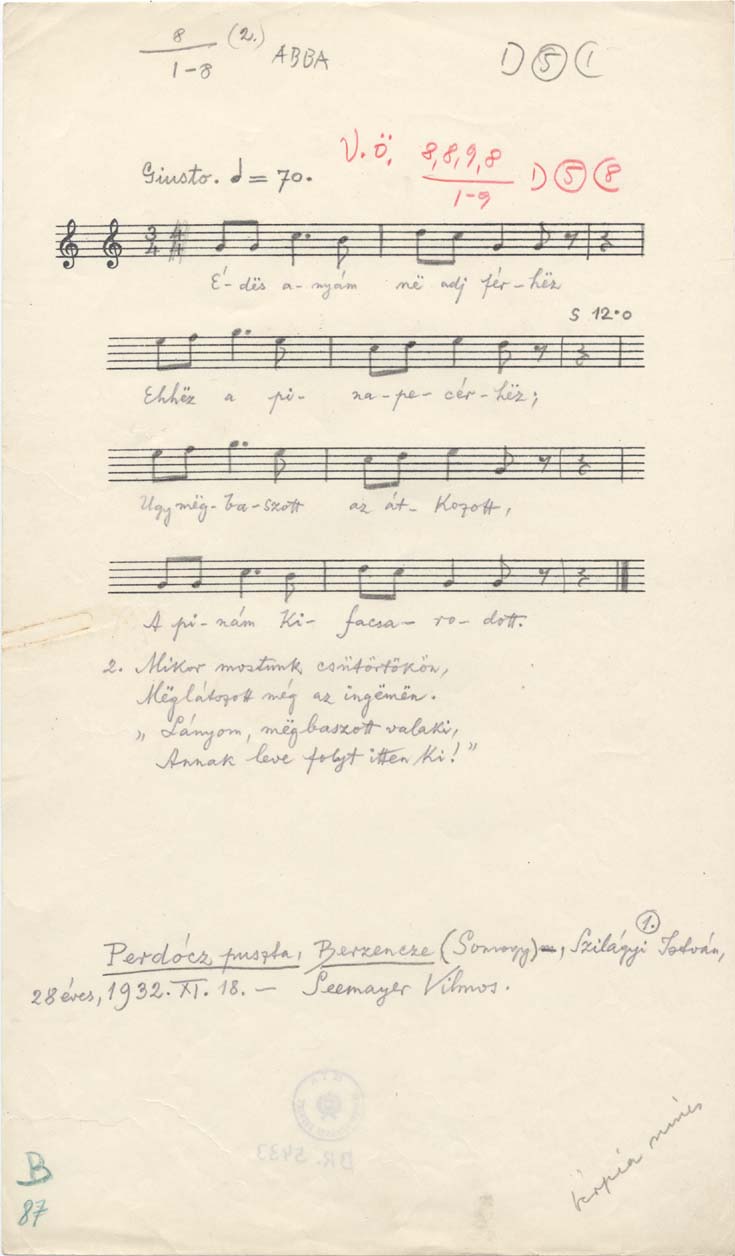 8 (2.) ABBA 1) 5 (1
1-8
V. ö. 8,8,9,8 1) 5 (8
1-9
Giusto. 𝅗𝅥 = 70.
3 4
4 4
É-dës a-nyám në adj fér-hëz
S 12•0
Ehhëz a pi-na-pe-cér-hëz;
Ugy mëg-ba-szott az át-kozott,
A pi-nám ki-facsa-ro-dott.
2. Mikor mostunk csütörtökön,
Mëglátszott még az ingëmën.
„Lányom, mëgbaszott valaki,
Annak leve folyt itten ki!"
1.
Perdócz puszta, Berzencze (Somogy), Szilágyi István,
28 éves, 1932. XI. 18. — Seemayer Vilmos.
DR. 5433
B
87
kópia nincs